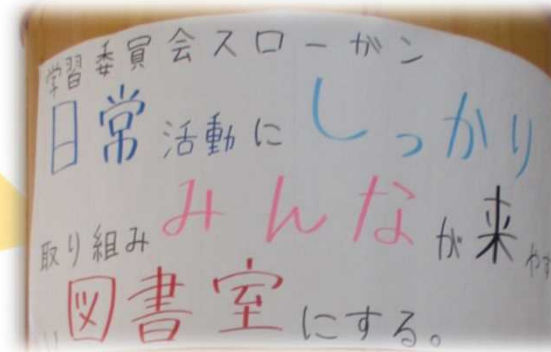 学習委員会スローガン
日常活動にしっかり
取り組みみんなが来や
図書室にする。